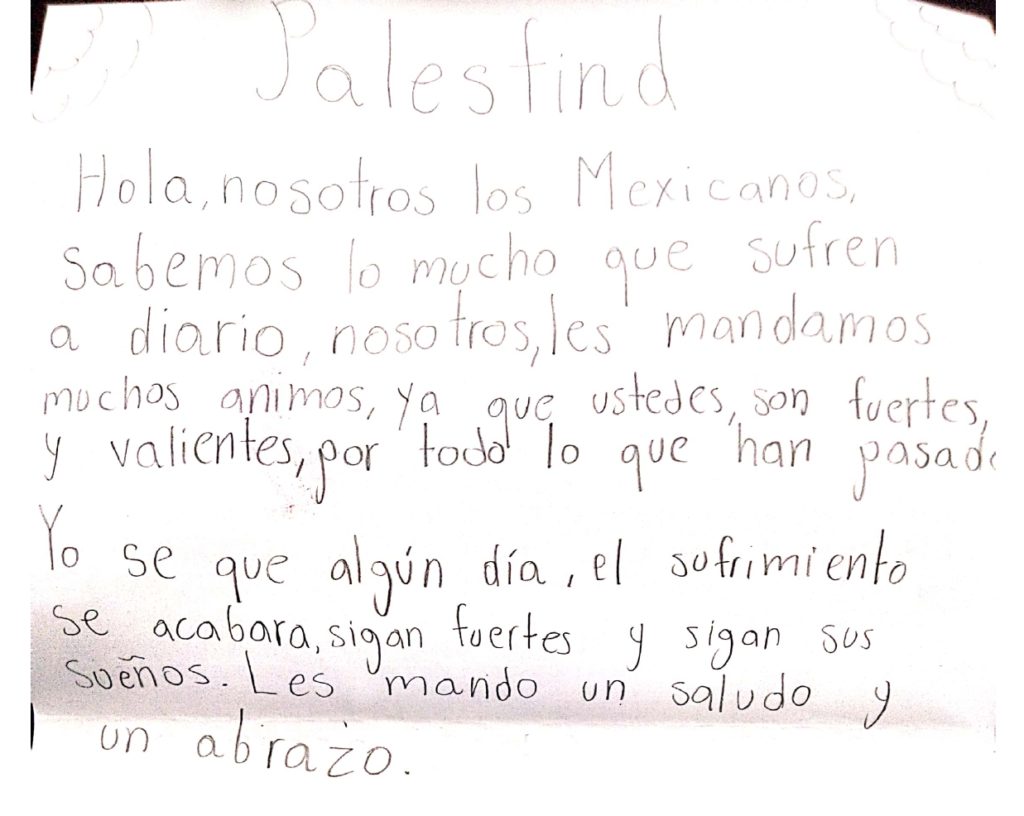 Palestina
Hola, nosotros los Mexicanos,
sabemos lo mucho que sufren
a diario, nosotros, les mandamos
muchos animos, ya que ustedes, son fuertes,
y valientes, por todo lo que han pasado
Yo se que algún día, el sufrimiento
se acabara, sigan fuertes y sigan sus
sueños. Les mando un saludo y
un abrazo.